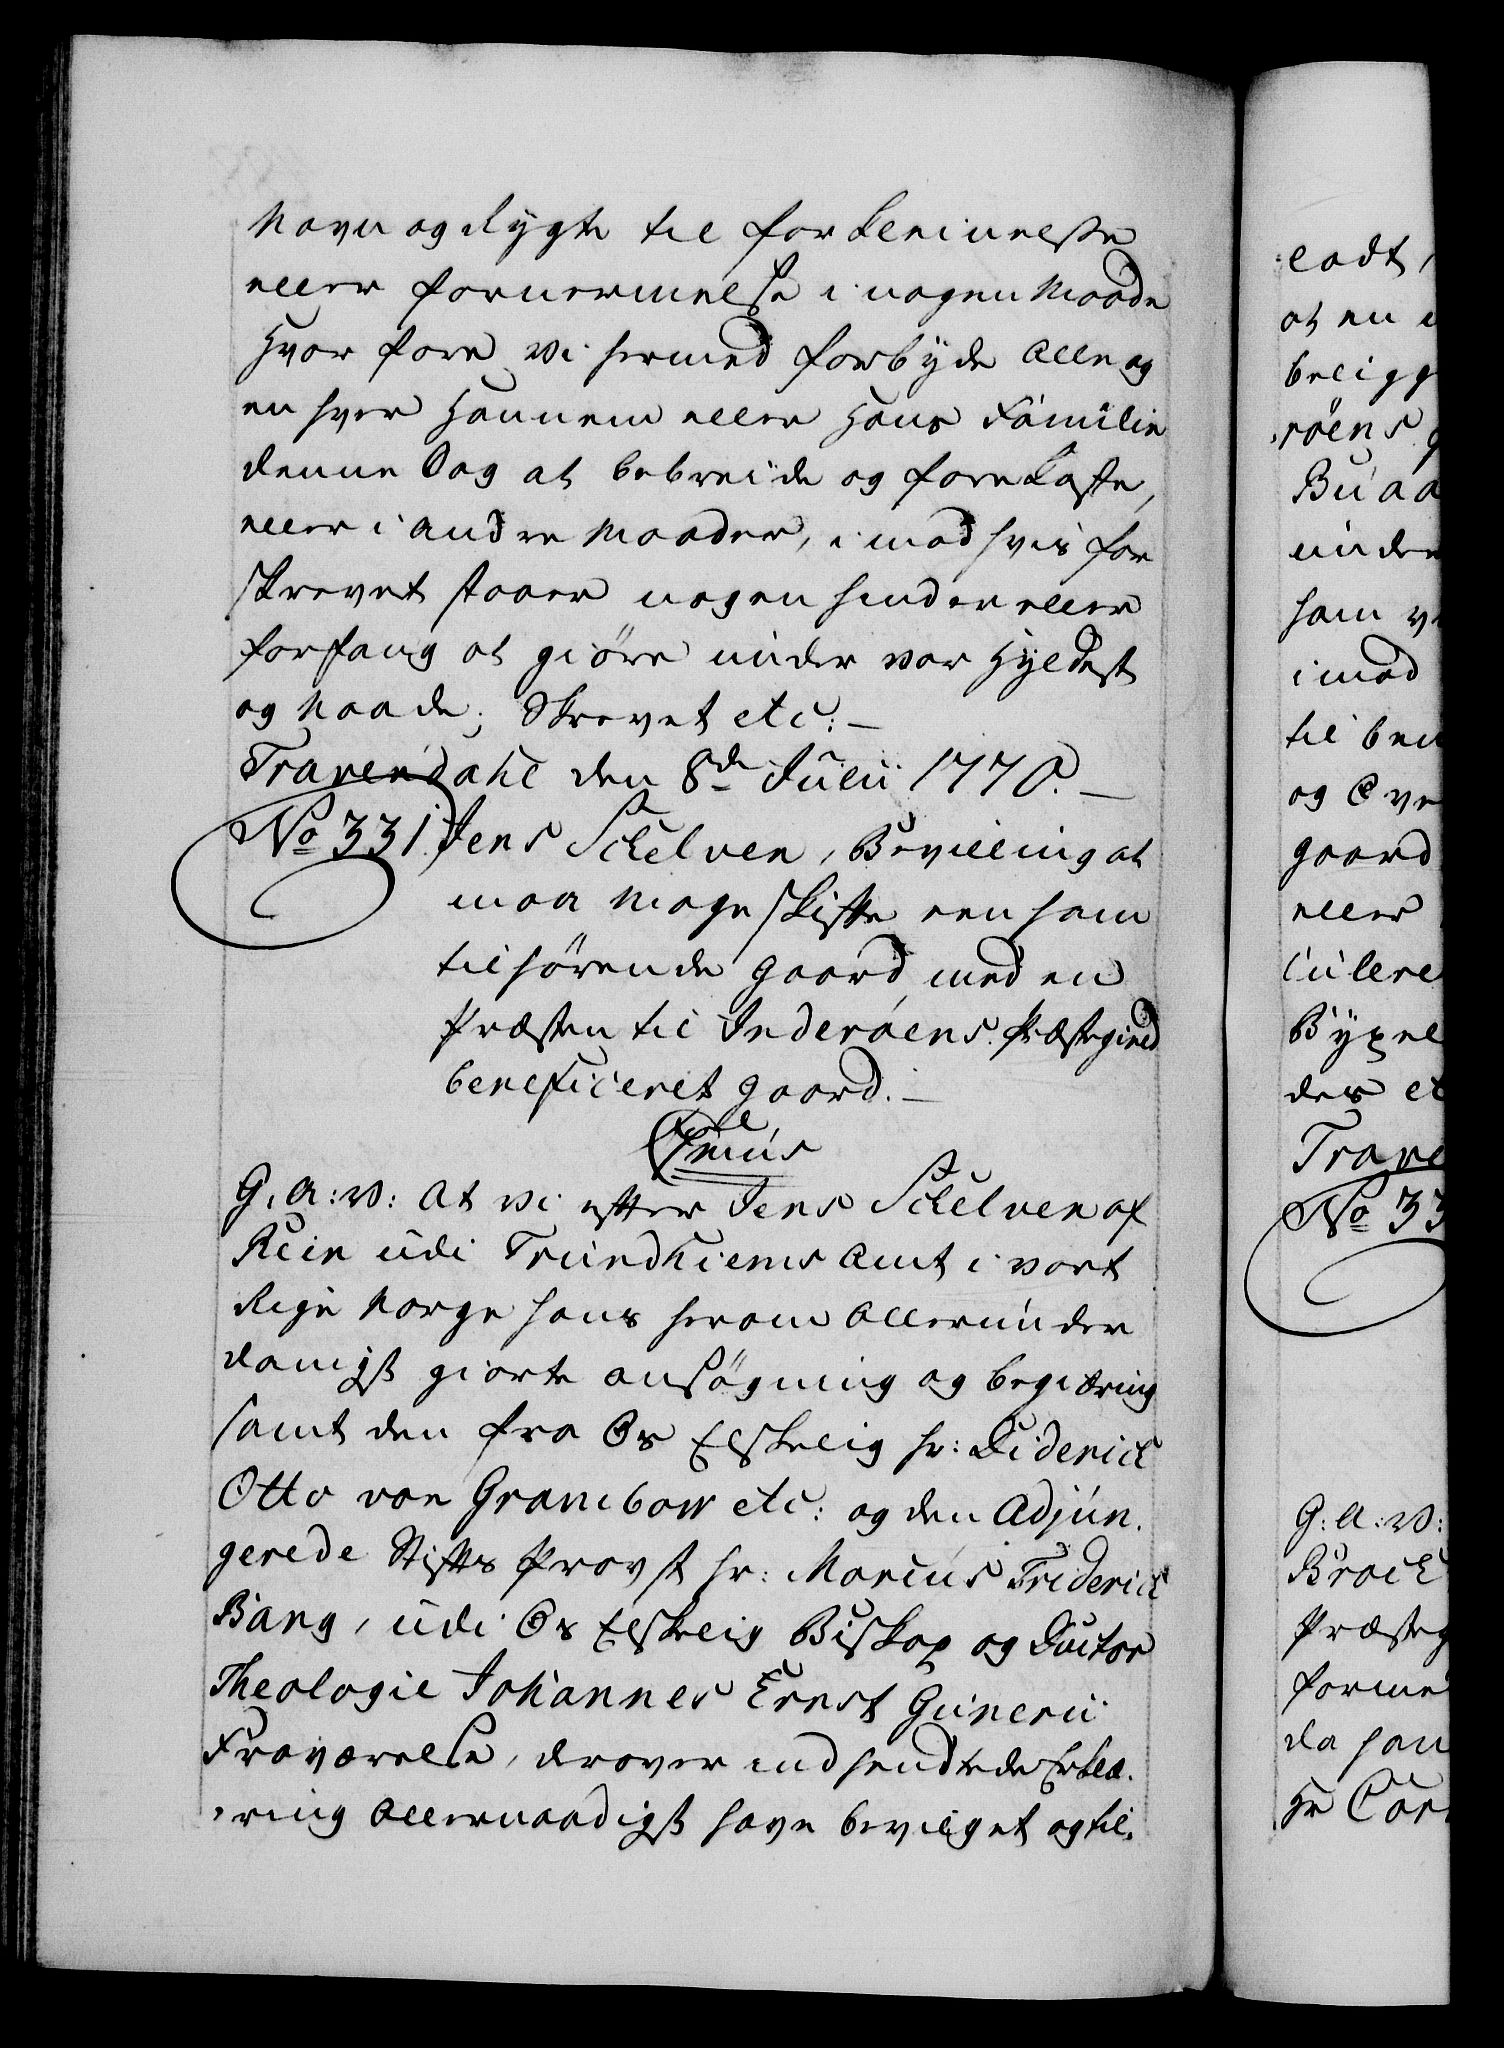 Navn og Rygte til forkleinelse
eller fornermelse i nogen Maade
Hvor fore vi hermed forbyde Alle og
en hver Hannem eller Hans Familie
denne Sag at bebreide og fore kaste,
eller i andre Maader, imod hvis for
skrevet staaer nogen hinder eller
forfang at giöre under vor Hyldest
og Naade; Skrevet etc: —
Travendahl den 8de Julii 1770. —
No 331. Jens Schelven, Bevilling at
maa Mageskifte een ham
tilhørende Gaard, med en
Præsten til Inderøens Præstegield
beneficeret Gaard. —
G: A: V: At vi efter Jens Schelven af
Rein udi Trundhiems Amt i vort
Rige Norge hans herom Allerunder
danigst giorte ansögning og begiæring
samt den fra Os Elskelig hr: Diderich
Otto von Grambow etc: og den Adjun.
gerede Stifts Provst hr: Marcus Friderich
Bang, udi Os Elskelig Biskop og Doctor
Theologie Johannes Ernst Gunerii
Fraværelse, derover indsendte Erklæ.
ring Allernaadigst have bevilget og til.
ladt,
at en
beligg
røens
Buaa
under
ham
imod
til
og
gaard
eller
Byxel
des
Trave
No 33
G: A: V:
Brock
Præsteg
forme
da han
Hr